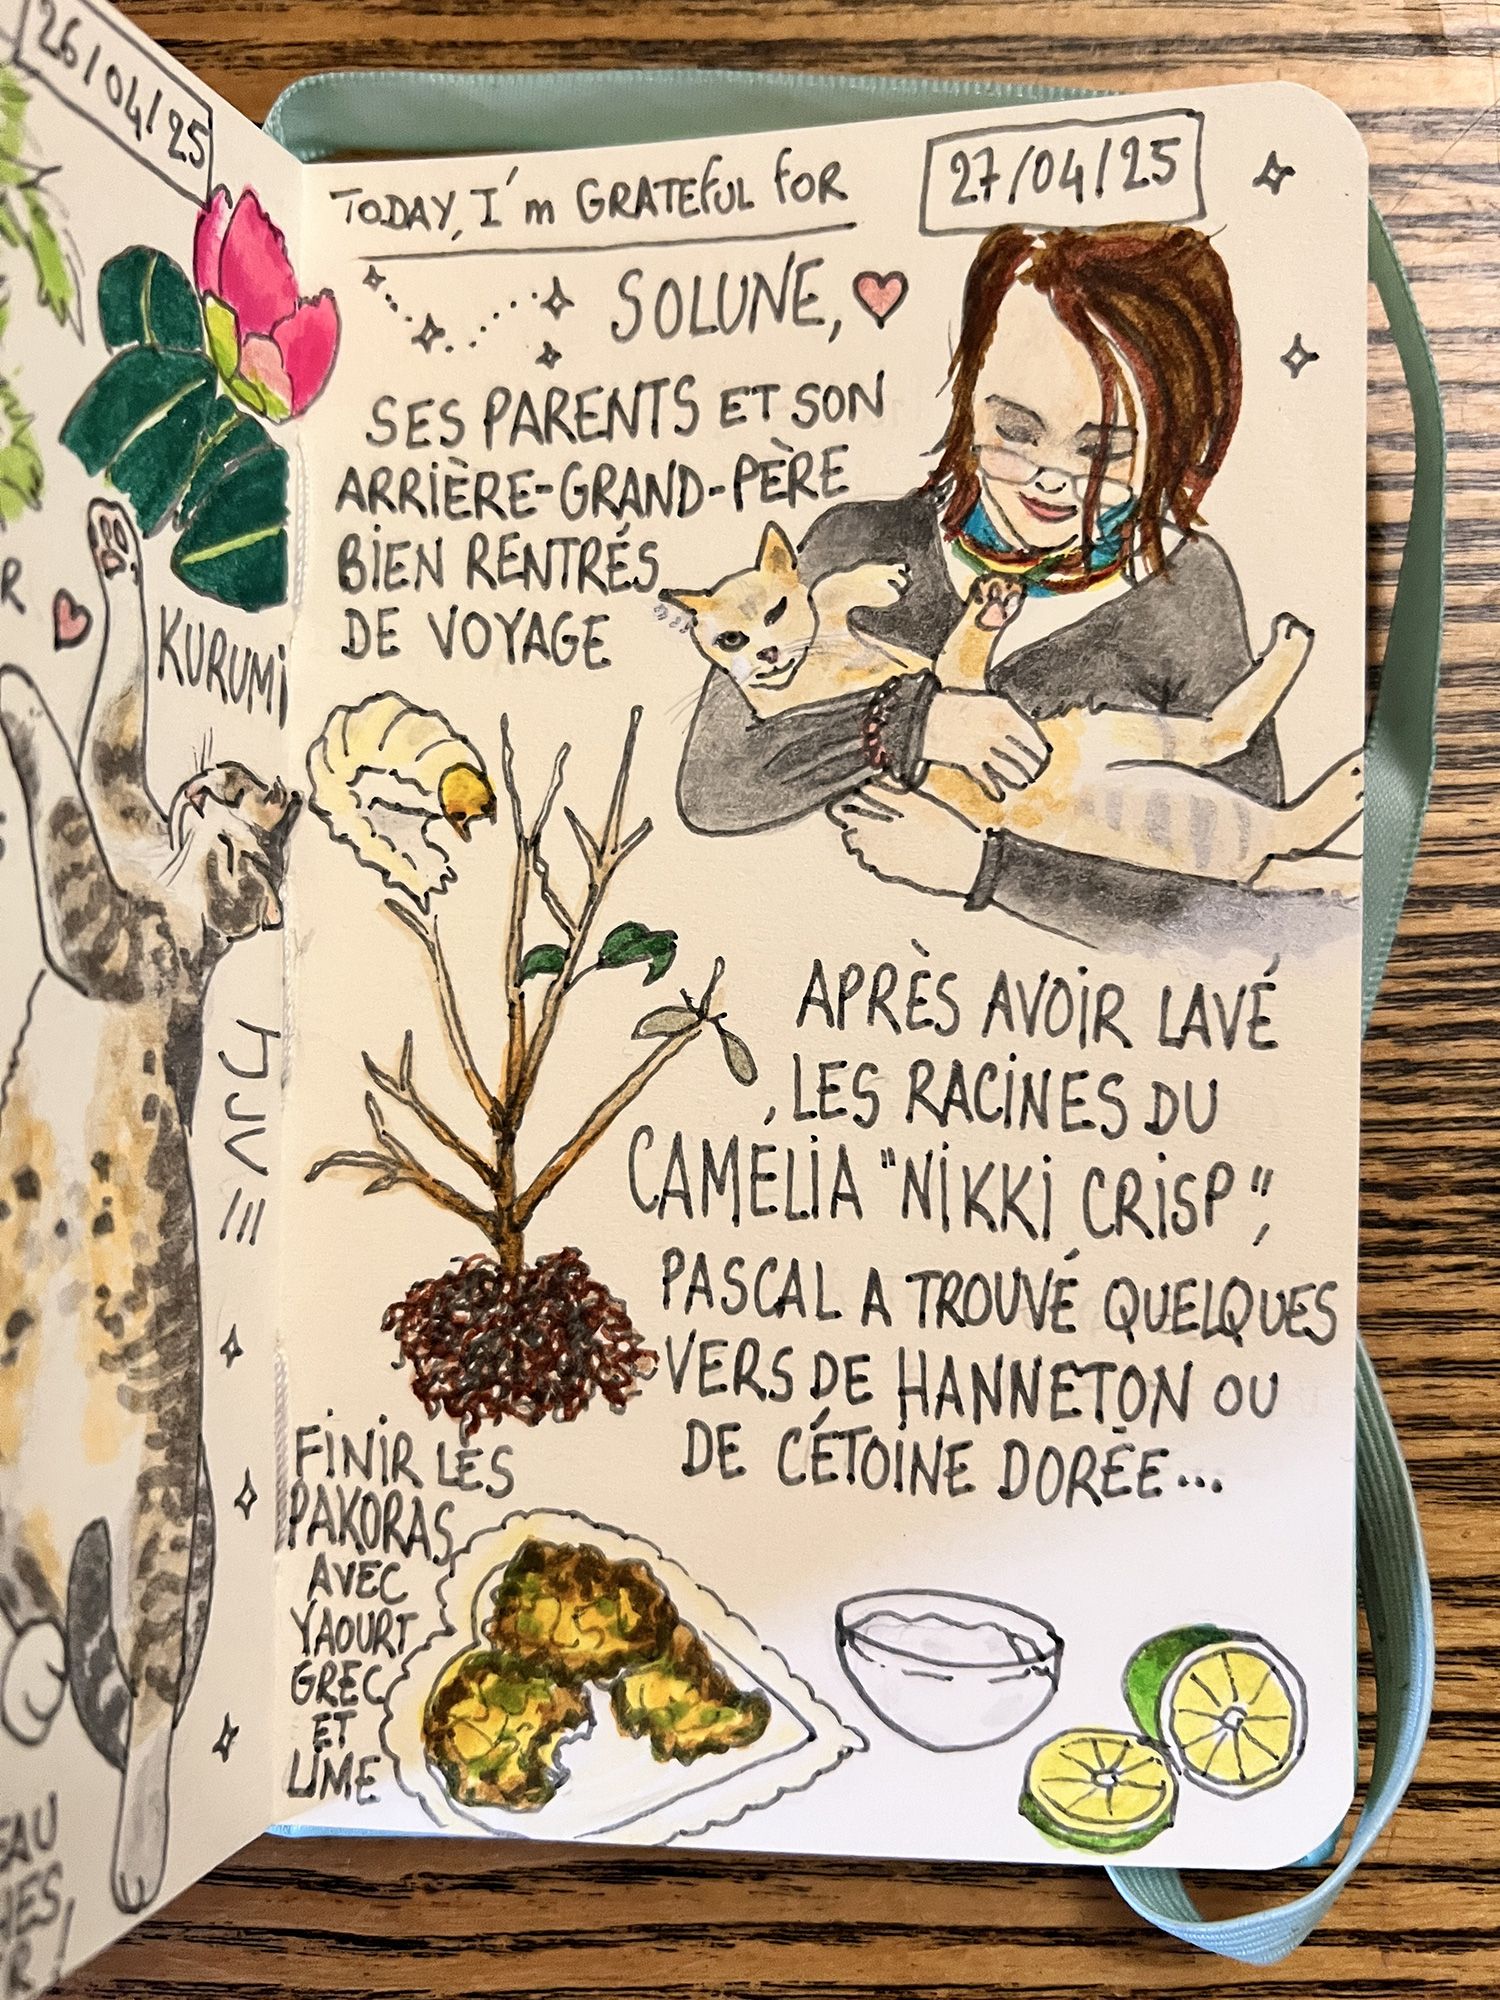 26/04/25
KURUMI
TODAY, I'm GRATEFUL FOR
27/04/25
SOLUNE,
SES PARENTS ET SON
ARRIÈRE-GRAND-PÈRE
BIEN RENTRÉS
DE VOYAGE
APRÈS AVOIR LAVÉ
LES RACINES DU
CAMÉLIA "NIKKI CRISP",
PASCAL A TROUVÉ QUELQUES
VERS DE HANNETON OU
DE CÉTOINE DORÉE...
FINIR LES
PAKORAS
AVEC
YAOURT
GREC
ET
LIME